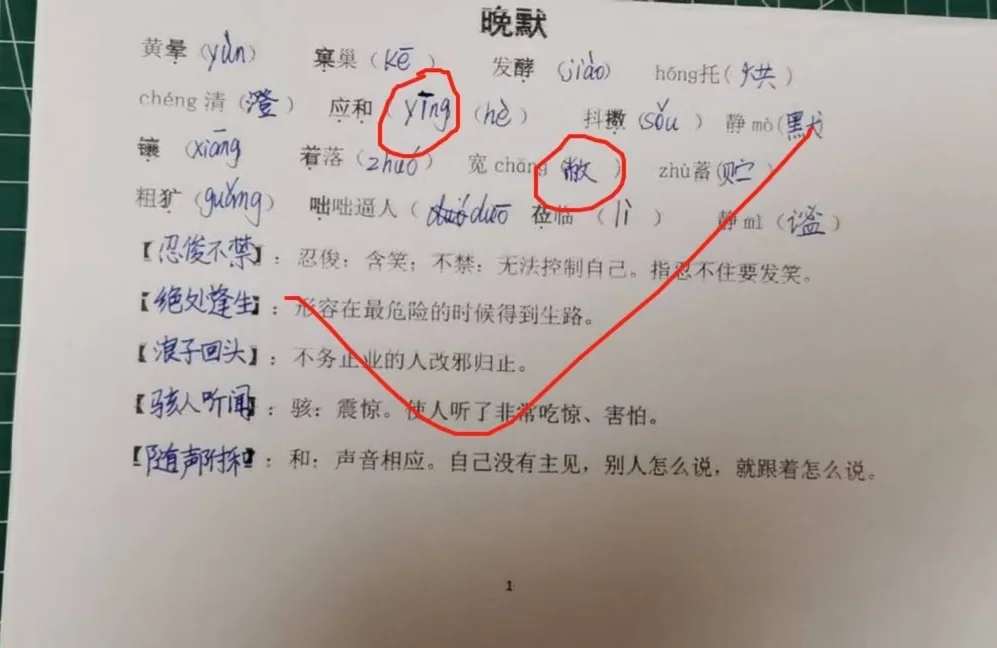 晚默
黄晕（yùn） 窠巢（kē） 发酵（jiào） hóng托（烘）
chéng 清（澄） 应和（yīng）（hè） 抖擞（sǒu） 静 mò（默）
镶（xiāng 着落（zhuó） 宽 chǎng（敞） zhù蓄（贮）
粗犷（guǎng） 咄咄逼人（duō） 莅临（lì） 静 mì（谧）
【忍俊不禁】：忍俊：含笑；不禁：无法控制自己。指忍不住要发笑。
【绝处逢生】：形容在最危险的时候得到生路。
【浪子回头】：不务正业的人改邪归正。
【骇人听闻】：骇：震惊。使人听了非常吃惊、害怕。
【随声附和】：和：声音相应。自己没有主见，别人怎么说，就跟着怎么说。
1